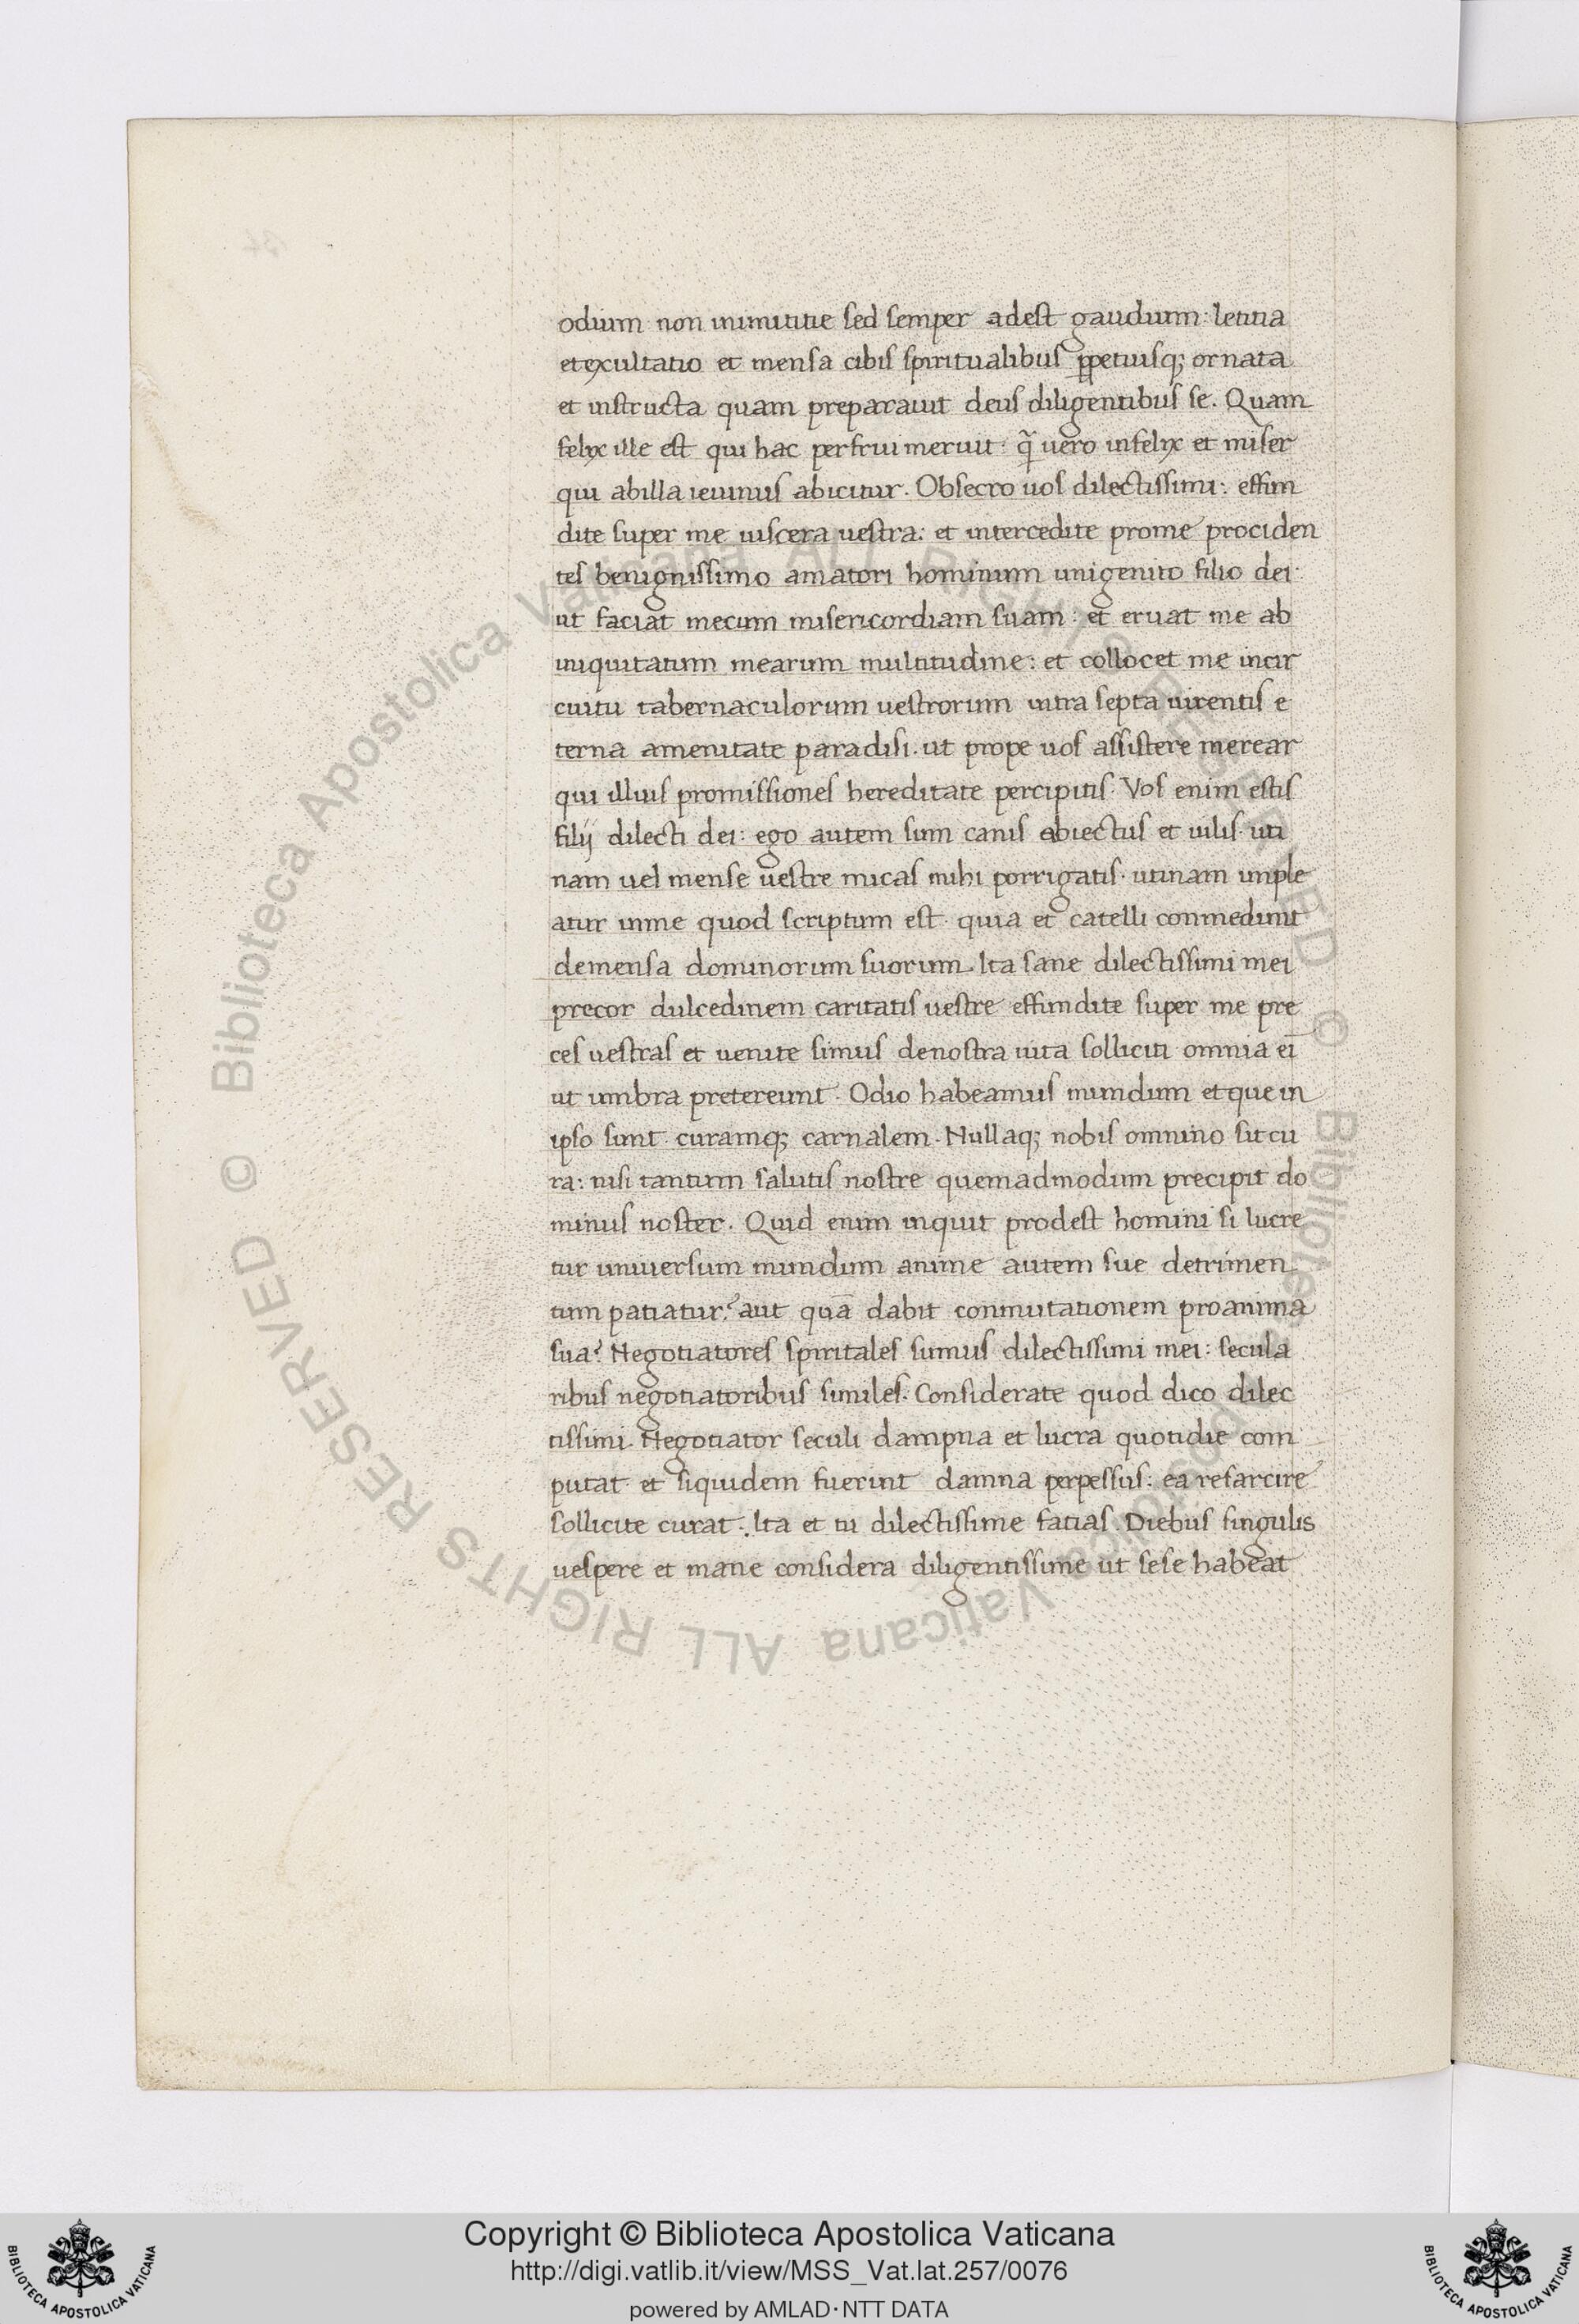 odium non inimititie sed semper adest gaudium: letitia
et exultatio et mensa cibis spiritualibus ꝑpetuisq; ornata
et instructa quam preparauit deus diligentibus se. Quam
felyx ille est qui hac perfrui meruit: q̃ uero infelyx et miser
qui ab illa ieiunus abicitur. Obsecro uos dilectissimi: effun
dite super me uiscera uestra: et intercedite pro me prociden
tes benignissimo amatori hominum unigenito filio dei·
ut faciat mecum misericordiam suam: et eruat me ab
iniquitatum mearum multitudine: et collocet me in cir
cuitu tabernaculorum uestrorum intra septa uirentis e
terna amenitate paradisi. ut prope uos assistere merear
qui illius promissiones hereditate percipitis. Vos enim estis
filij dilecti dei: ego autem sum canis abiectus et uilis. uti
nam uel mense uestre micas mihi porrigatis. utinam imple
atur in me quod scriptum est. quia et catelli conmedunt
de mensa dominorum suorum. Ita sane dilectissimi mei
precor dulcedinem caritatis uestre effundite super me pre
ces uestras et uenite simus de nostra uita solliciti omnia ei̅
ut umbra pretereunt. Odio habeamus mundum et que in
ipso sunt curamq; carnalem. Nullaq; nobis omnino sit cu
ra: nisi tantum salutis nostre quemadmodum precipit do
minus noster. Quid enim inquit prodest homini si lucre
tur uniuersum mundum anime autem sue detrimen
tum patiatur? aut quā dabit conmutationem pro anima
sua? Negotiatores spiritales sumus dilectissimi mei: secula
ribus negotiatoribus similes. Considerate quod dico dilec
tissimi. Negotiator seculi dampna et lucra quotidie com
putat et siquidem fuerint damna perpessus: ea resarcire
sollicite curat. Ita et tu dilectissime facias. Diebus singulis
uespere et mane considera diligentissime ut sese habeat
© Biblioteca Apostolica Vaticana ALL RIGHTS RESERVED © Biblioteca Apostolica Vaticana ALL RIGHTS RESERVED
Copyright © Biblioteca Apostolica Vaticana
http://digi.vatlib.it/view/MSS_Vat.lat.257/0076
powered by AMLAD·NTT DATA
BIBLIOTECA APOSTOLICA VATICANA
BIBLIOTECA APOSTOLICA VATICANA